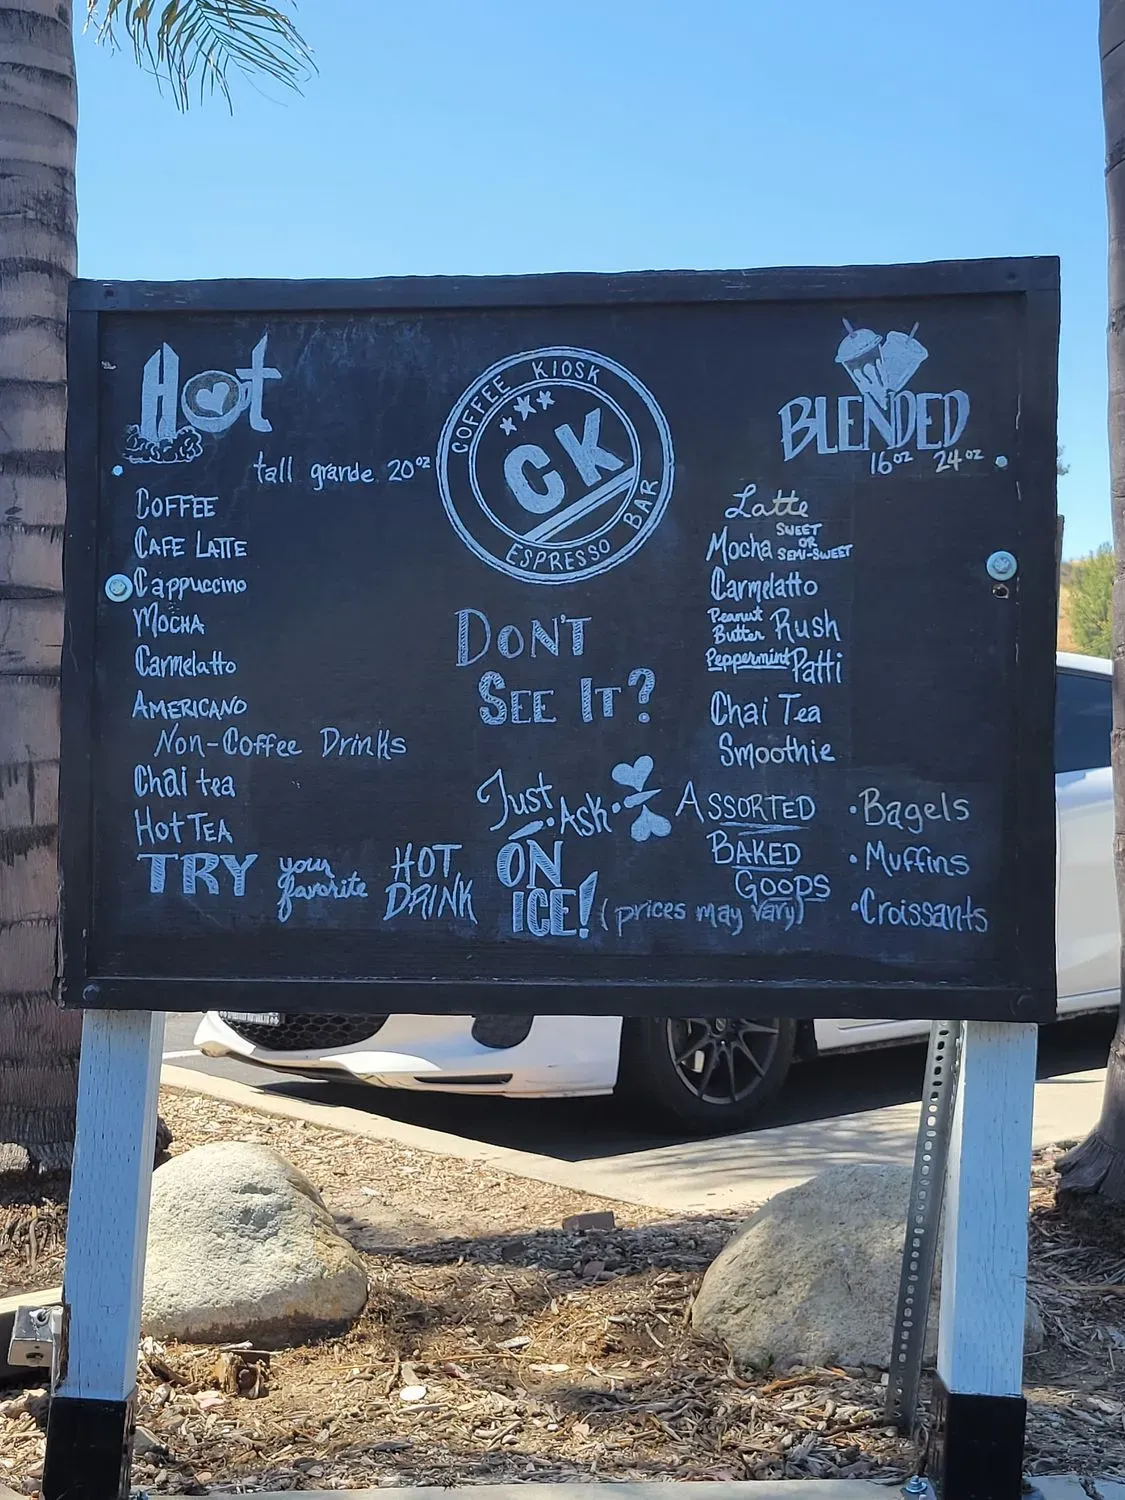 Hot
tall grande 20oz
COFFEE
CAFE LATTE
Cappuccino
MOCHA
Carmelatto
AMERICANO
Non-Coffee Drinks
Chai tea
HOT TEA
TRY your favorite HOT DRINK ON ICE! (prices may vary)
COFFEE KIOSK
CK
ESPRESSO BAR
DON'T
SEE IT?
Just
Ask
BLENDED
16oz 24oz
Latte
Mocha SWEET OR SEMI-SWEET
Carmelatto
Peanut Butter Rush
Peppermint Patti
Chai Tea
Smoothie
ASSORTED
BAKED
GOOPS
• Bagels
• Muffins
• Croissants